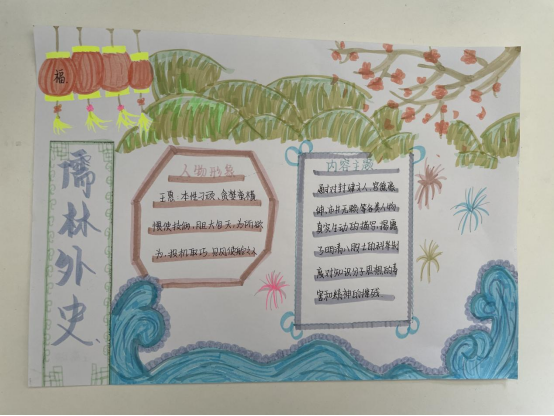 福
儒林外史
人物形象
王惠:本性刁顽、贪婪蛮横
惯使技俩,胆大包天,为所欲
为,投机取巧,见风使舵之人
内容主题
通过对封建文人、官僚豪
绅、市井无赖等各类人物
真实生动的描写,揭露
了四清八股士的科举制
度对知识分子思想的毒
害和精神的摧残